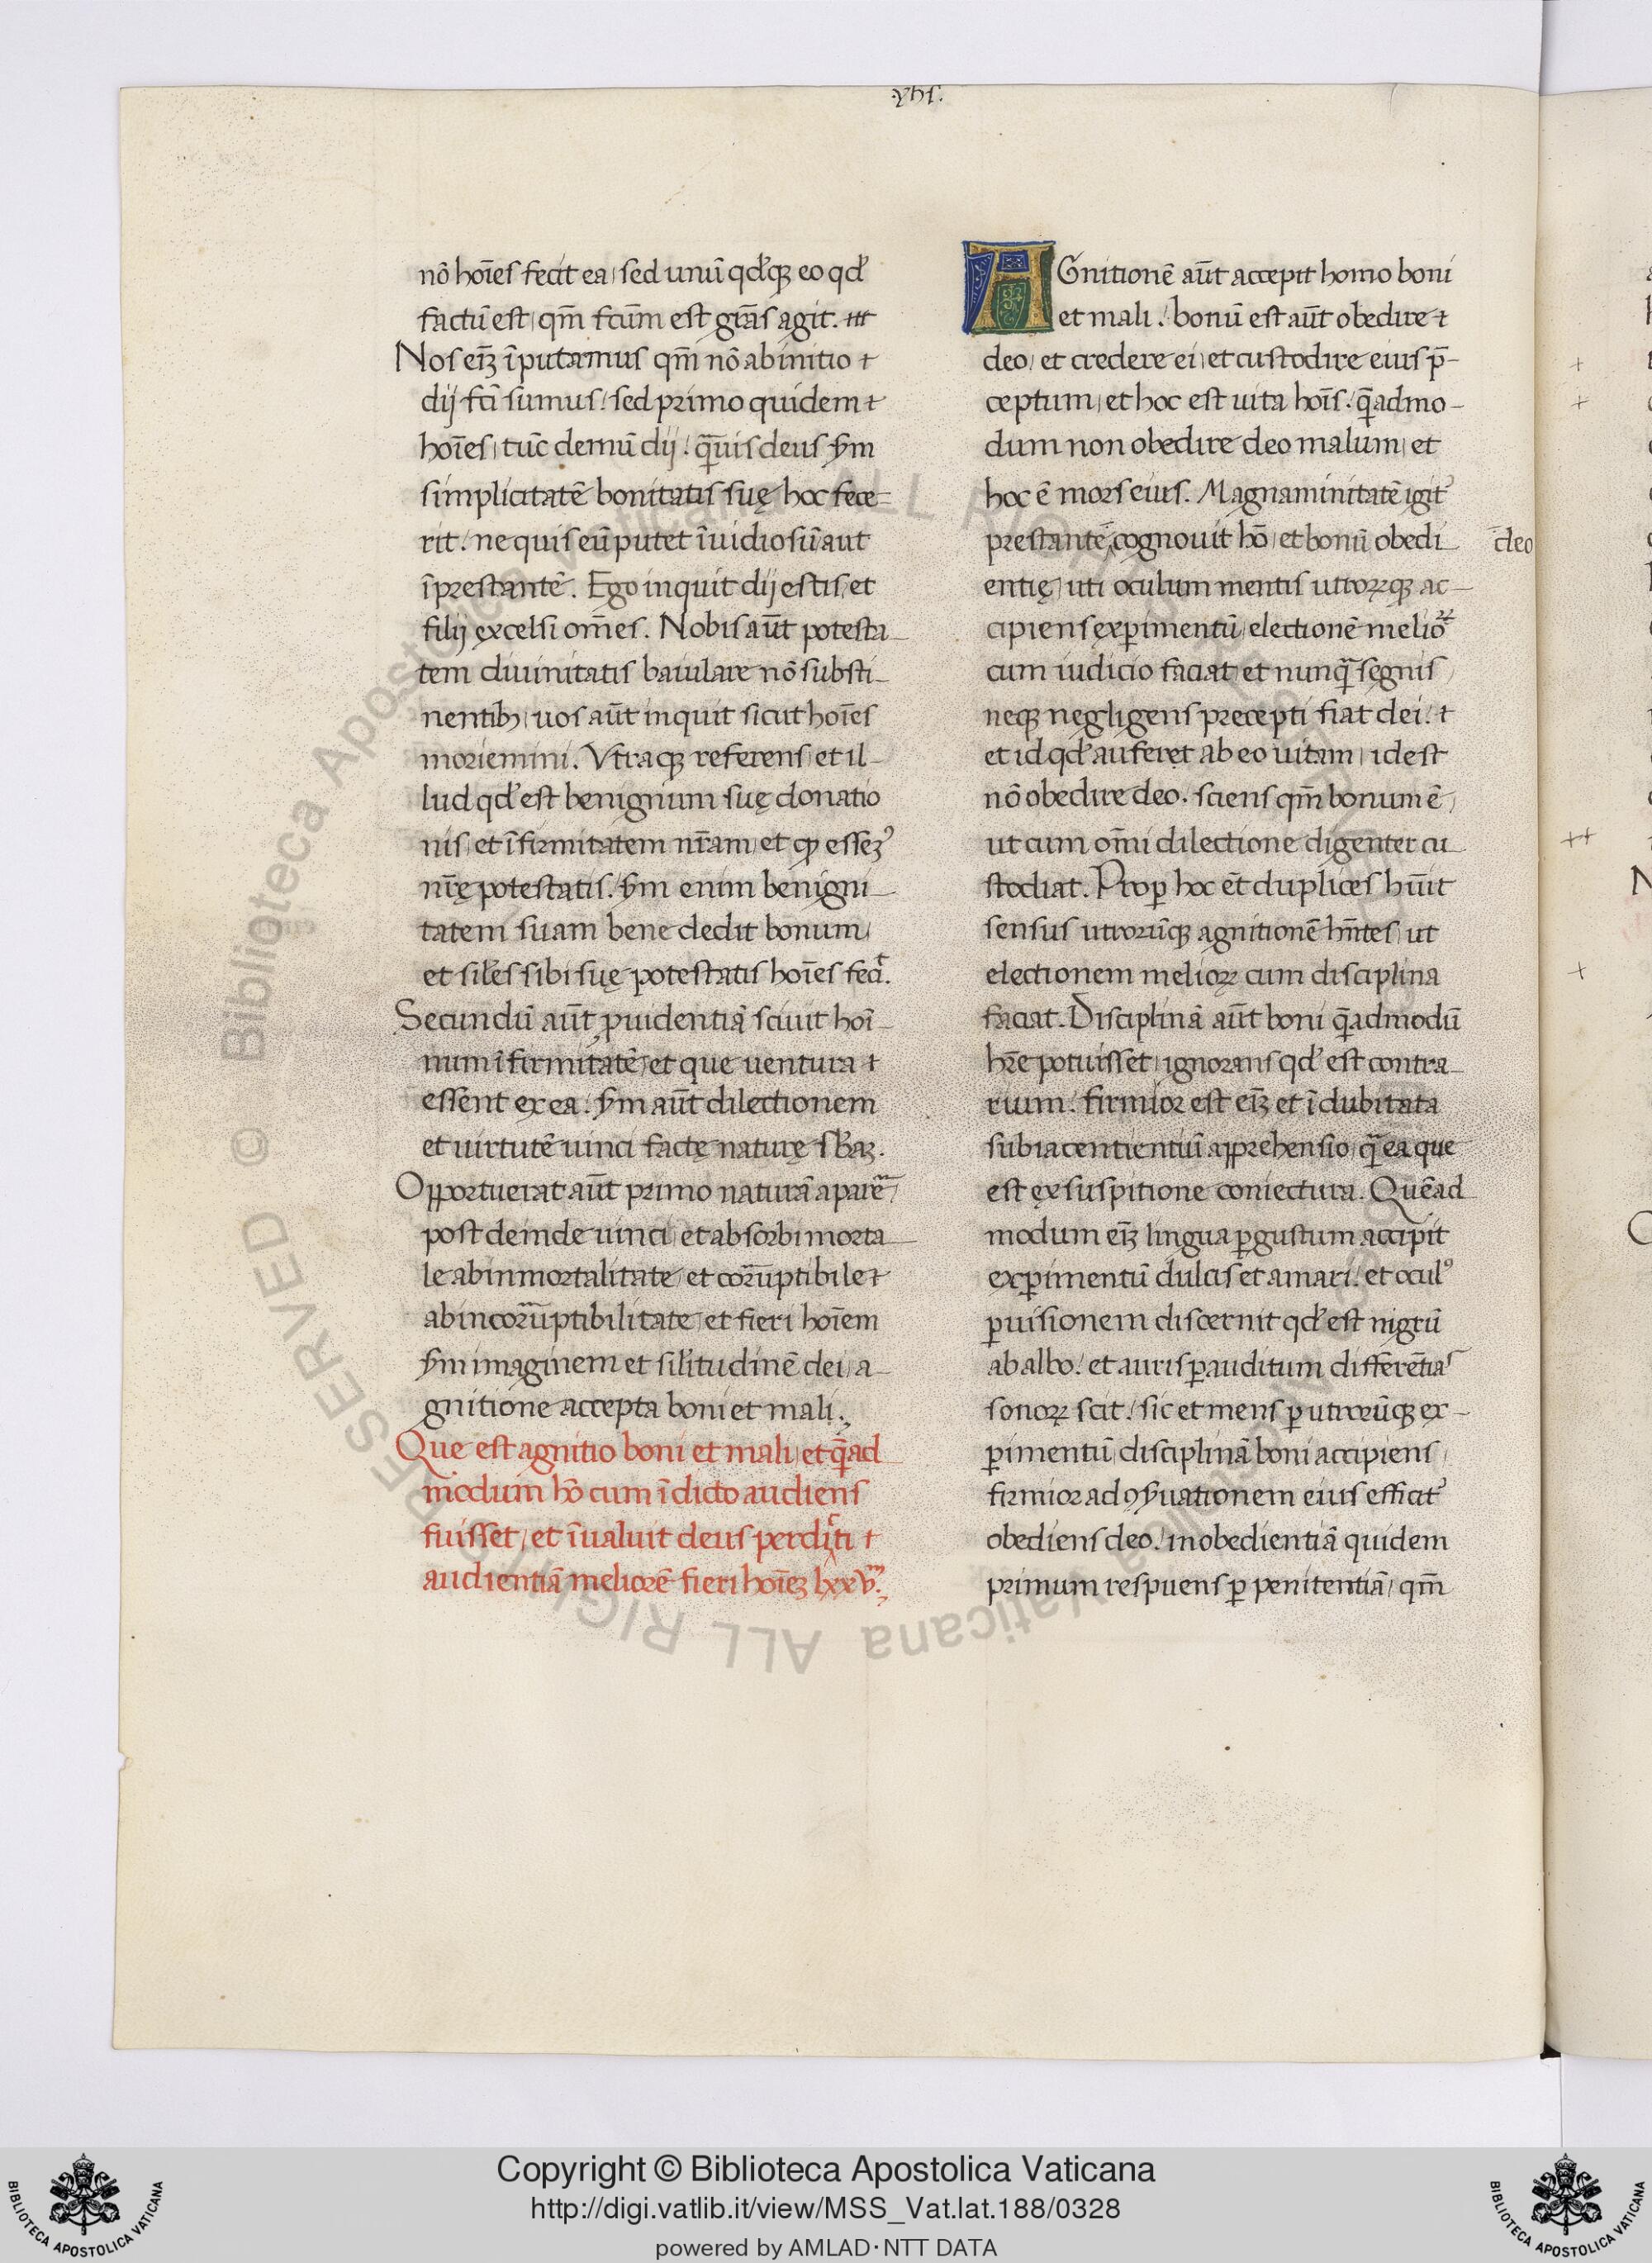 .yhs.
nō hoīes fecit ea, sed unū qđcꝫ eo qđ
factū est, qm̄ fcūm est grās agit.
Nos eīꝫ īputamus qm̄ nō abinitio
dij fcī sumus, sed primo quidem
hoīes, tūc demū dij. q̄uis deus ẜm
simplicitatē bonitatis suę hoc fece
rit. ne quis eū putet īuidiosū aut
īprestantē. Ego inquit dij estis, et
filij excelsi om̄es. Nobis aūt potesta
tem diuinitatis baiulare nō substi
nentibꝫ, uos aūt inquit sicut hoīes
moriemini. Vtraqꝫ referens, et il
lud qđ est benignum suę donatio
nis, et īfirmitatem nr̄am, et ꝙ esseꝫ
nr̄ę potestatis. ẜm enim benigni
tatem suam bene dedit bonum,
et sil̄es sibi suę potestatis hoīes fecit.
Secundū aūt ꝓuidentiā sciuit hoī
num īfirmitatē, et que uentura
essent ex ea. ẜm aūt dilectionem
et uirtutē uinci factę naturę sb̄aꝫ.
Opportuerat aūt primo naturā aparē,
post deinde uinci, et absorbi morta
le ab inmortalitate, et corruptibile
ab incorruptibilitate, et fieri hoīem
ẜm imaginem et sil̄itudinē dei, a
gnitione accepta boni et mali.
Que est agnitio boni et mali, et q̄ad
modum hō cum īdicto audiens
fuisset, et īualuit deus perditi
audientiā meliorē fieri hoīeꝫ lxxv.
AGnitionē aūt accepit homo boni
et mali. bonū est aūt obedire
deo, et credere ei, et custodire eius p̄
ceptum, et hoc est uita hoīs. q̄admo
dum non obedire deo malum, et
hoc ē mors eius. Magnaminitatē igit᷑
prestantē cognouit hō, et bonū obedi
deo
entię, uti oculum mentis utroꝝqꝫ ac
cipiens exꝑimentū, electionē melioꝝ
cum iudicio faciat, et nunq̄ segnis,
neqꝫ negligens precepti fiat dei.
et id qđ auferet ab eo uitam, id est
nō obedire deo. sciens qm̄ bonum ē,
ut cum om̄i dilectione digenter cu
stodiat. Proꝑ hoc ēt duplices hūit
sensus utrorūqꝫ agnitionē hn̄tes, ut
electionem melioꝝ cum disciplina
faciat. Disciplinā aūt boni q̄admodū
hr̄e potuisset, ignorans qđ est contra
rium. firmior est eīꝫ et īdubitata
subiacentientiū apprehensio, q̄ ea que
est ex suspitione coniectura. Quēad
modum eīꝫ lingua ꝑ gustum accipit
exꝑimentū dulcis et amari. et oculꝰ
ꝑ uisionem discernit qđ est nigrū
ab albo. et auris ꝑ auditum differētias
sonoꝝ scit. sic et mens ꝑ utrorūqꝫ ex
ꝑimentū, disciplinā boni accipiens,
firmior ad ꝯẜuationem eius efficit᷑
obediens deo. inobedientiā quidem
primum respuens ꝑ penitentiā, qm̄
© Biblioteca Apostolica Vaticana ALL RIGHTS RESERVED
Copyright © Biblioteca Apostolica Vaticana
http://digi.vatlib.it/view/MSS_Vat.lat.188/0328
powered by AMLAD·NTT DATA
BIBLIOTECA APOSTOLICA VATICANA
BIBLIOTECA APOSTOLICA VATICANA